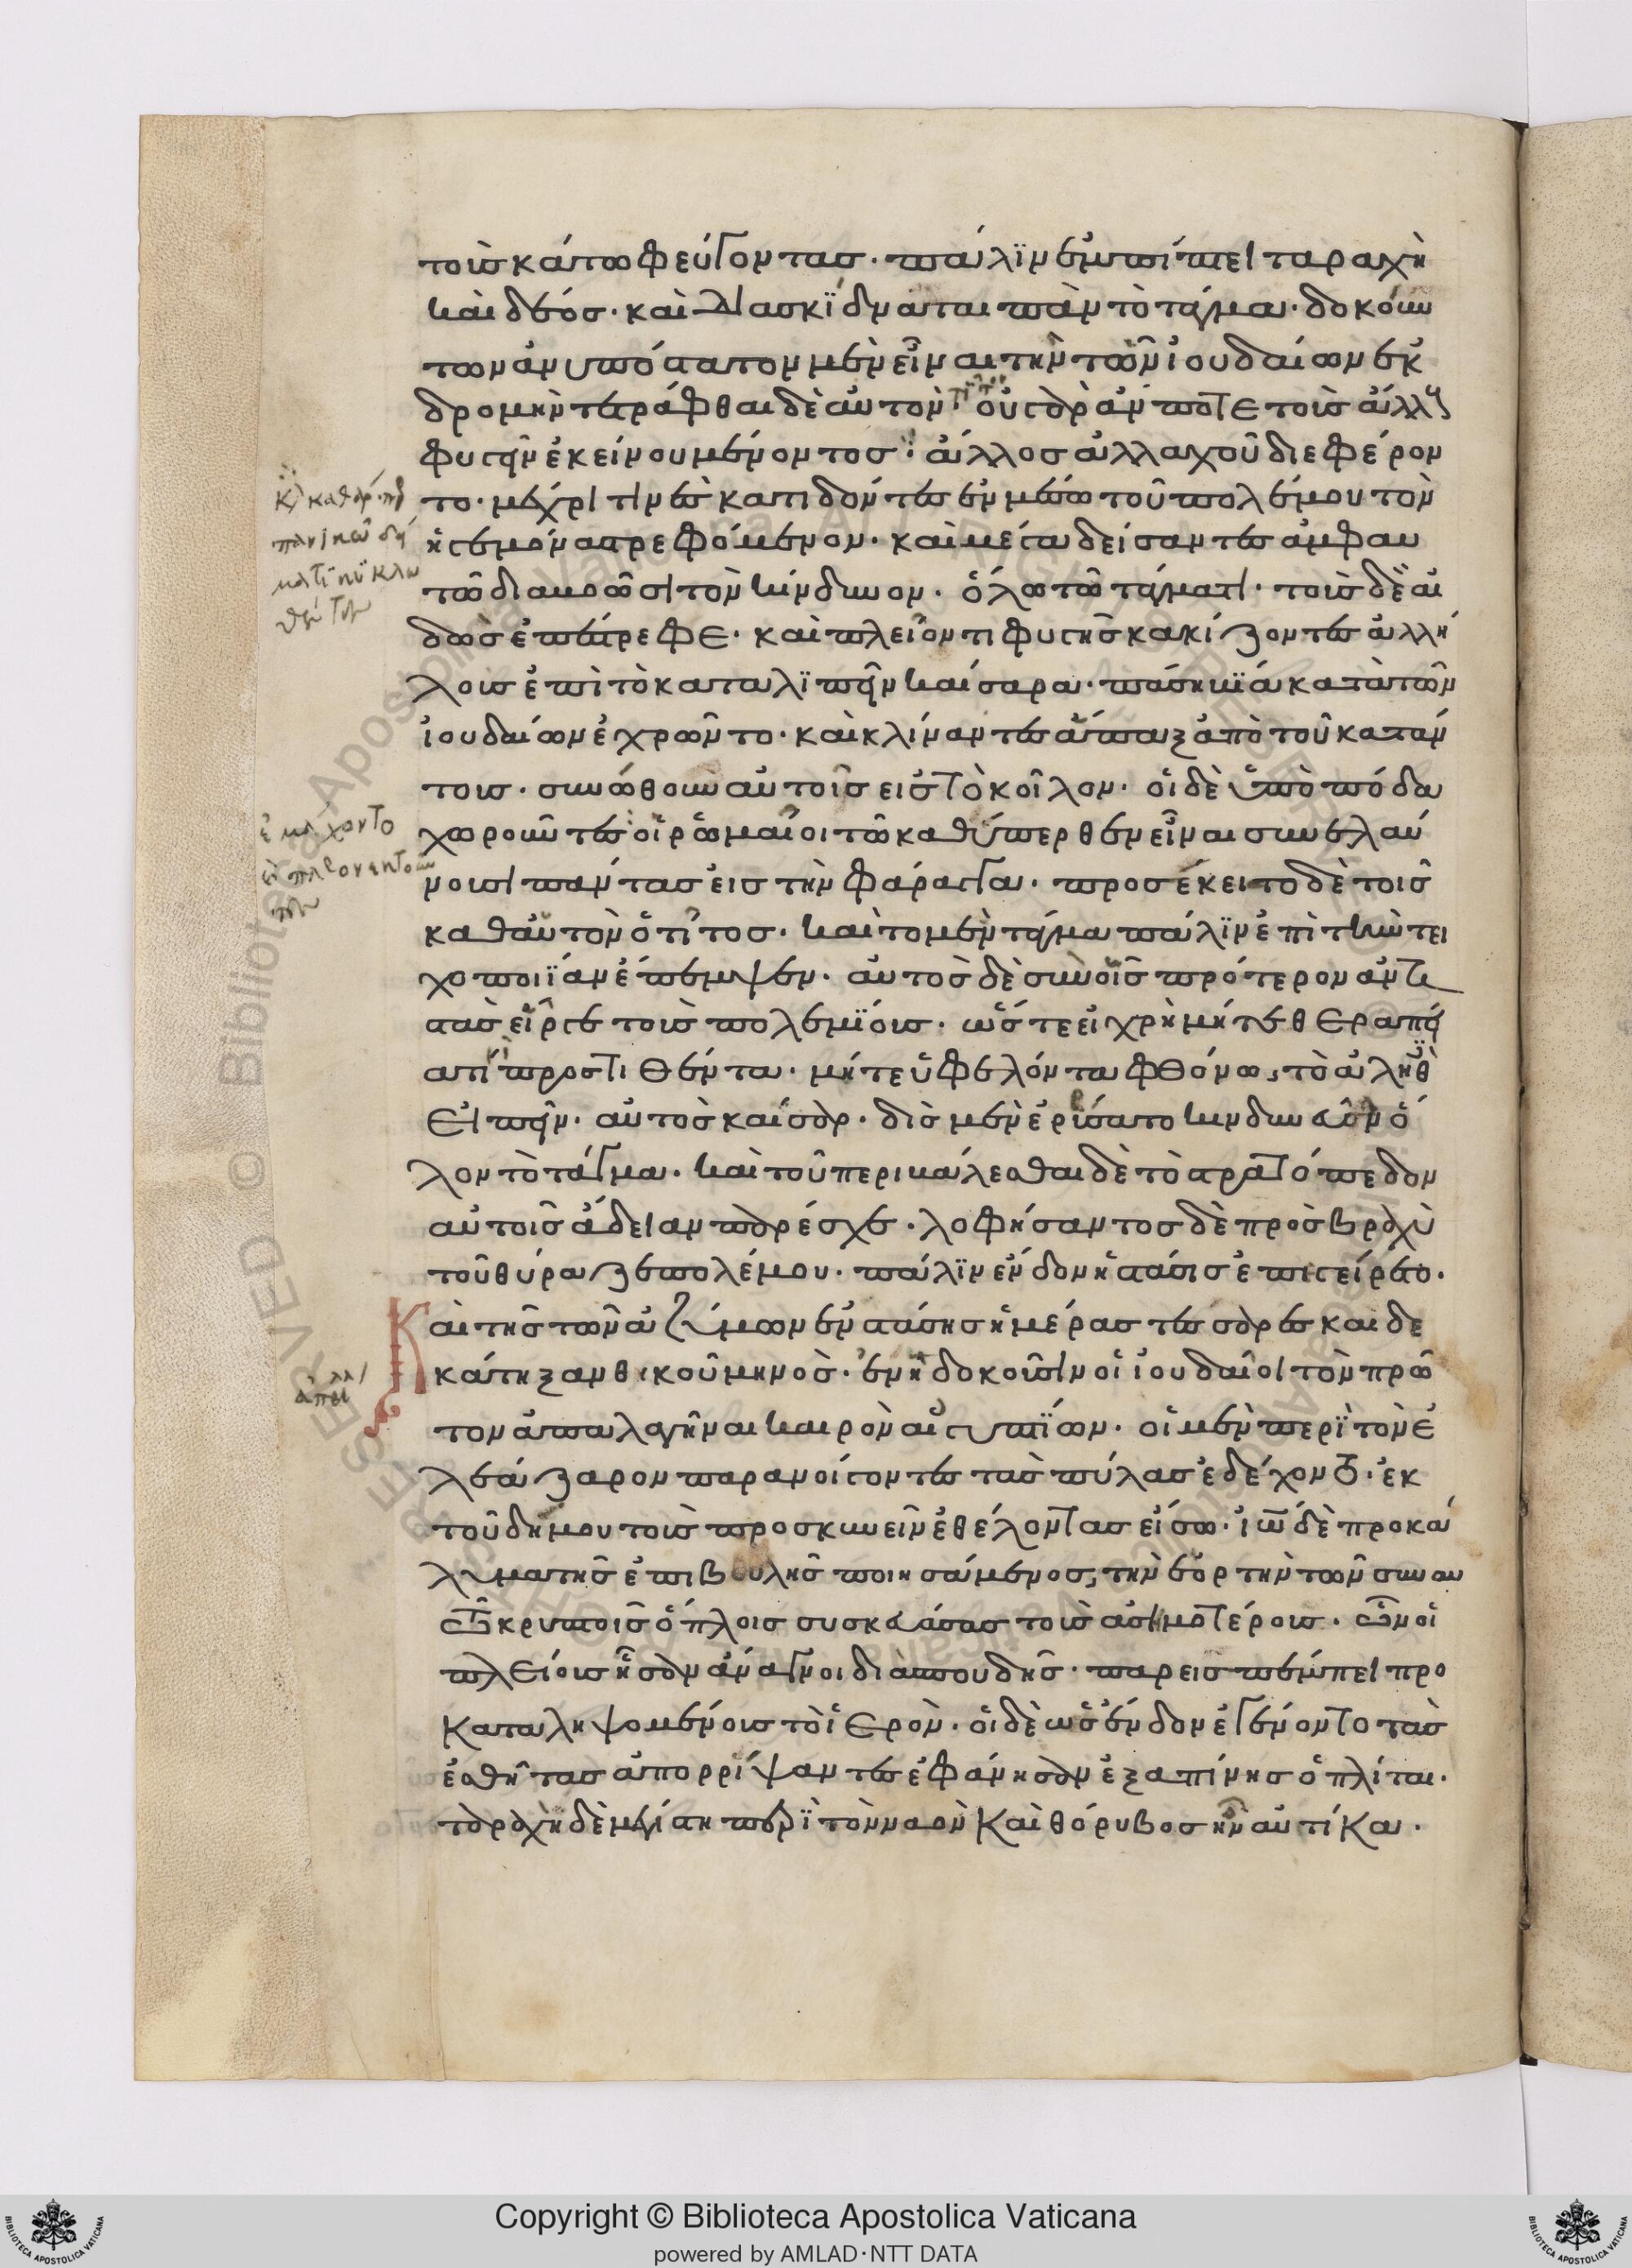 τοὺς κάτω φεύγοντας. πάλιν ἐμπίπτει ταραχὴ
καὶ δέος. καὶ διασκίδναται πᾶν τὸ τάγμα. δοκούν
των ἀνυπόστατον μὲν εἶναι τὴν τῶν ἰουδαίων ἐκ
δρομὴν τετράφθαι δὲ αὐτὸν τίτον οὐ γὰρ ἄν ποτε τοὺς ἄλλους
φυγεῖν ἐκείνου μένοντος. ἄλλος ἀλλαχοῦ διεφέρον
το. μέχρι τινὲς κατιδόντες ἐν μέσω τοῦ πολέμου τὸν
ἡγεμόνα στρεφόμενον. καὶ μέγα δείσαντες ἀμφ' αυ
τῶ διαβοῶσι τὸν κίνδυνον. ὅλω τῶ τάγματι. τοὺς δὲ αἰ
δὼς ἐπέστρεφε. καὶ πλεῖόν τι φυγῆς κακίζοντες ἀλλή
λους ἐπὶ τὸ καταλιπεῖν καίσαρα. πάση βία κατὰ τῶν
ἰουδαίων ἐχρῶντο. καὶ κλίναντες ἅπαξ ἀπὸ τοῦ κατάν
τους. συνώθουν αὐτοὺς εἰς τὸ κοῖλον. οἱ δὲ ὑπὸ πόδα
χωροῦντες οἱ ῥωμαῖοι τῶ καθύπερθεν εἶναι συνελαύ
νουσι πάντας εἰς τὴν φάραγγα. προσέκειτο δὲ τοῖς
καθ' αὐτὸν ὁ τίτος. καὶ τὸ μὲν τάγμα πάλιν ἐπὶ τὴν τει
χοποιίαν ἔπεμψεν. αὐτὸς δὲ σὺν οἷς πρότερον ἀντι
στὰς εἶργε τοὺς πολεμίους. ὥστε εἰ χρὴ μήτε θεραπεί
α τι προστιθέντα. μήτε ὑφελόντα φθόνω, τὸ ἀληθὲς
εἰπεῖν. αὐτὸς καῖσαρ. δὶς μὲν ἐρύσατο κινδυνεῦον ὅ
λον τὸ τάγμα. καὶ τοῦ περιβαλέσθαι δὲ τὸ στρατόπεδον
αὐτοῖς ἄδειαν παρέσχε. λοφήσαντος δὲ πρὸς βραχὺ
τοῦ θύραζε πολέμου. πάλιν ἔνδον ἡ στάσις ἐπεγείρετο.
Καὶ τῆς τῶν ἀζύμων ἐνστάσης ἡμέρας τεσσαρεσκαιδε
κάτη ξανθικοῦ μηνὸς. ἐν ἧ δοκοῦσιν οἱ ἰουδαῖοι τὸν πρῶ
τον ἀπαλαγῆναι καιρὸν αἰγυπτίων. οἱ μὲν περὶ τὸν ἐ
λεάζαρον παρανοίγοντες τὰς πύλας ἐδέχοντο. ἐκ
τοῦ δήμου τοὺς προσκυνεῖν ἐθέλοντας εἴσω. ἰω δὲ προκά
λυμα τῆς ἐπιβουλῆς ποιησάμενος, τὴν ἑορτὴν τῶν σὺν αυ
τῶ κρυπτοῖς ὅπλοις συσκευάσας τοὺς ἀσημοτέρους. ὧν οἱ
πλείους ἦσαν ἄναγνοι διὰ σπουδῆς. παρεισπέμπει προ
καταληψομένους τὸ ἱερὸν. οἱ δὲ ὡς ἔνδον ἐγένοντο τὰς
ἐσθῆτας ἀπορρίψαντες ἐφάνησαν ἐξαπίνης ὁπλίται.
ταραχὴ δὲ μεγίστη περὶ τὸν ναὸν καὶ θόρυβος ἦν αὐτίκα.
ἐμάχοντο
Copyright © Biblioteca Apostolica Vaticana
powered by AMLAD·NTT DATA